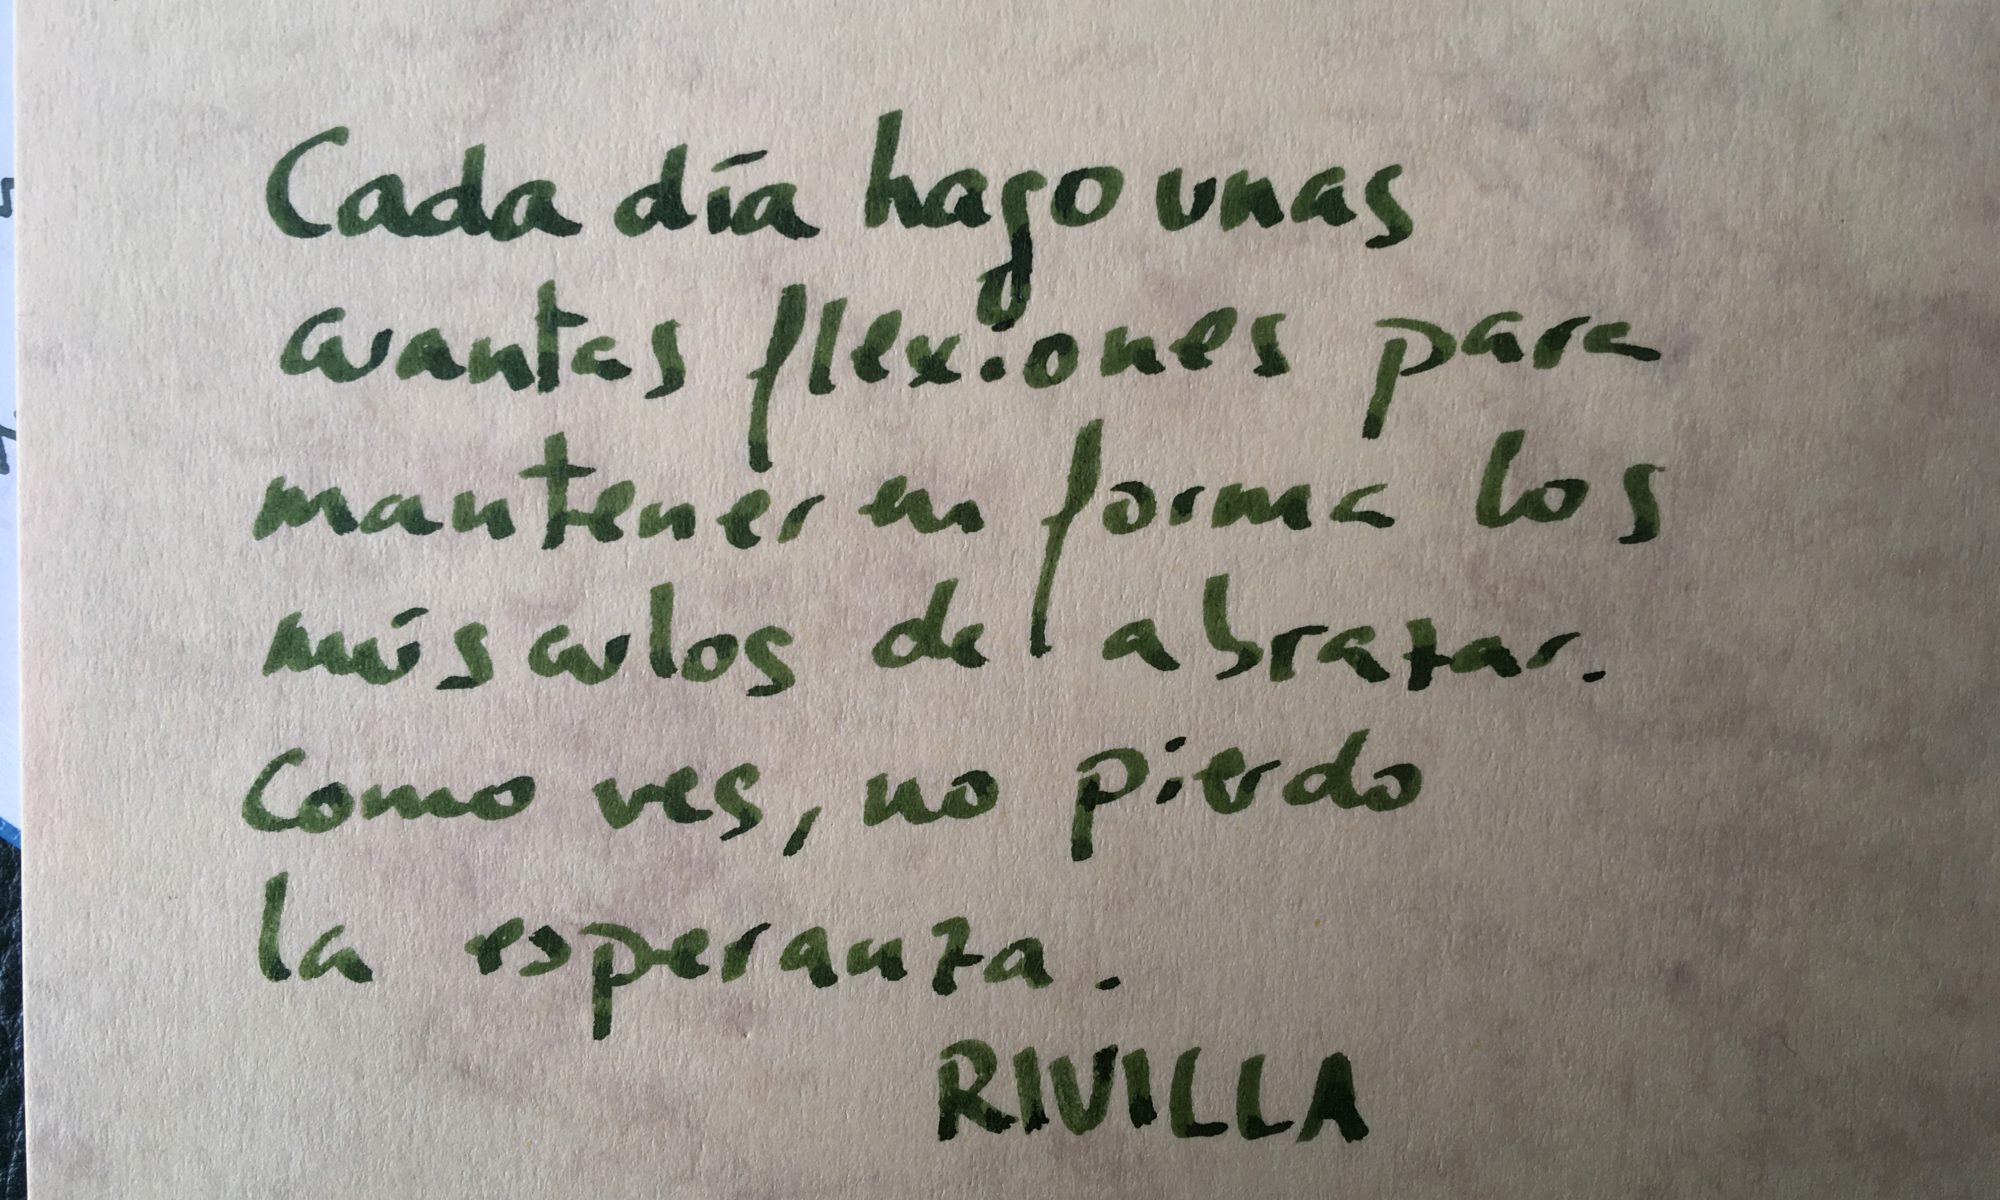 Cada día hago unas
cuantas flexiones para
mantener en forma los
músculos de abrazar.
Como ves, no pierdo
la esperanza.
RIVILLA